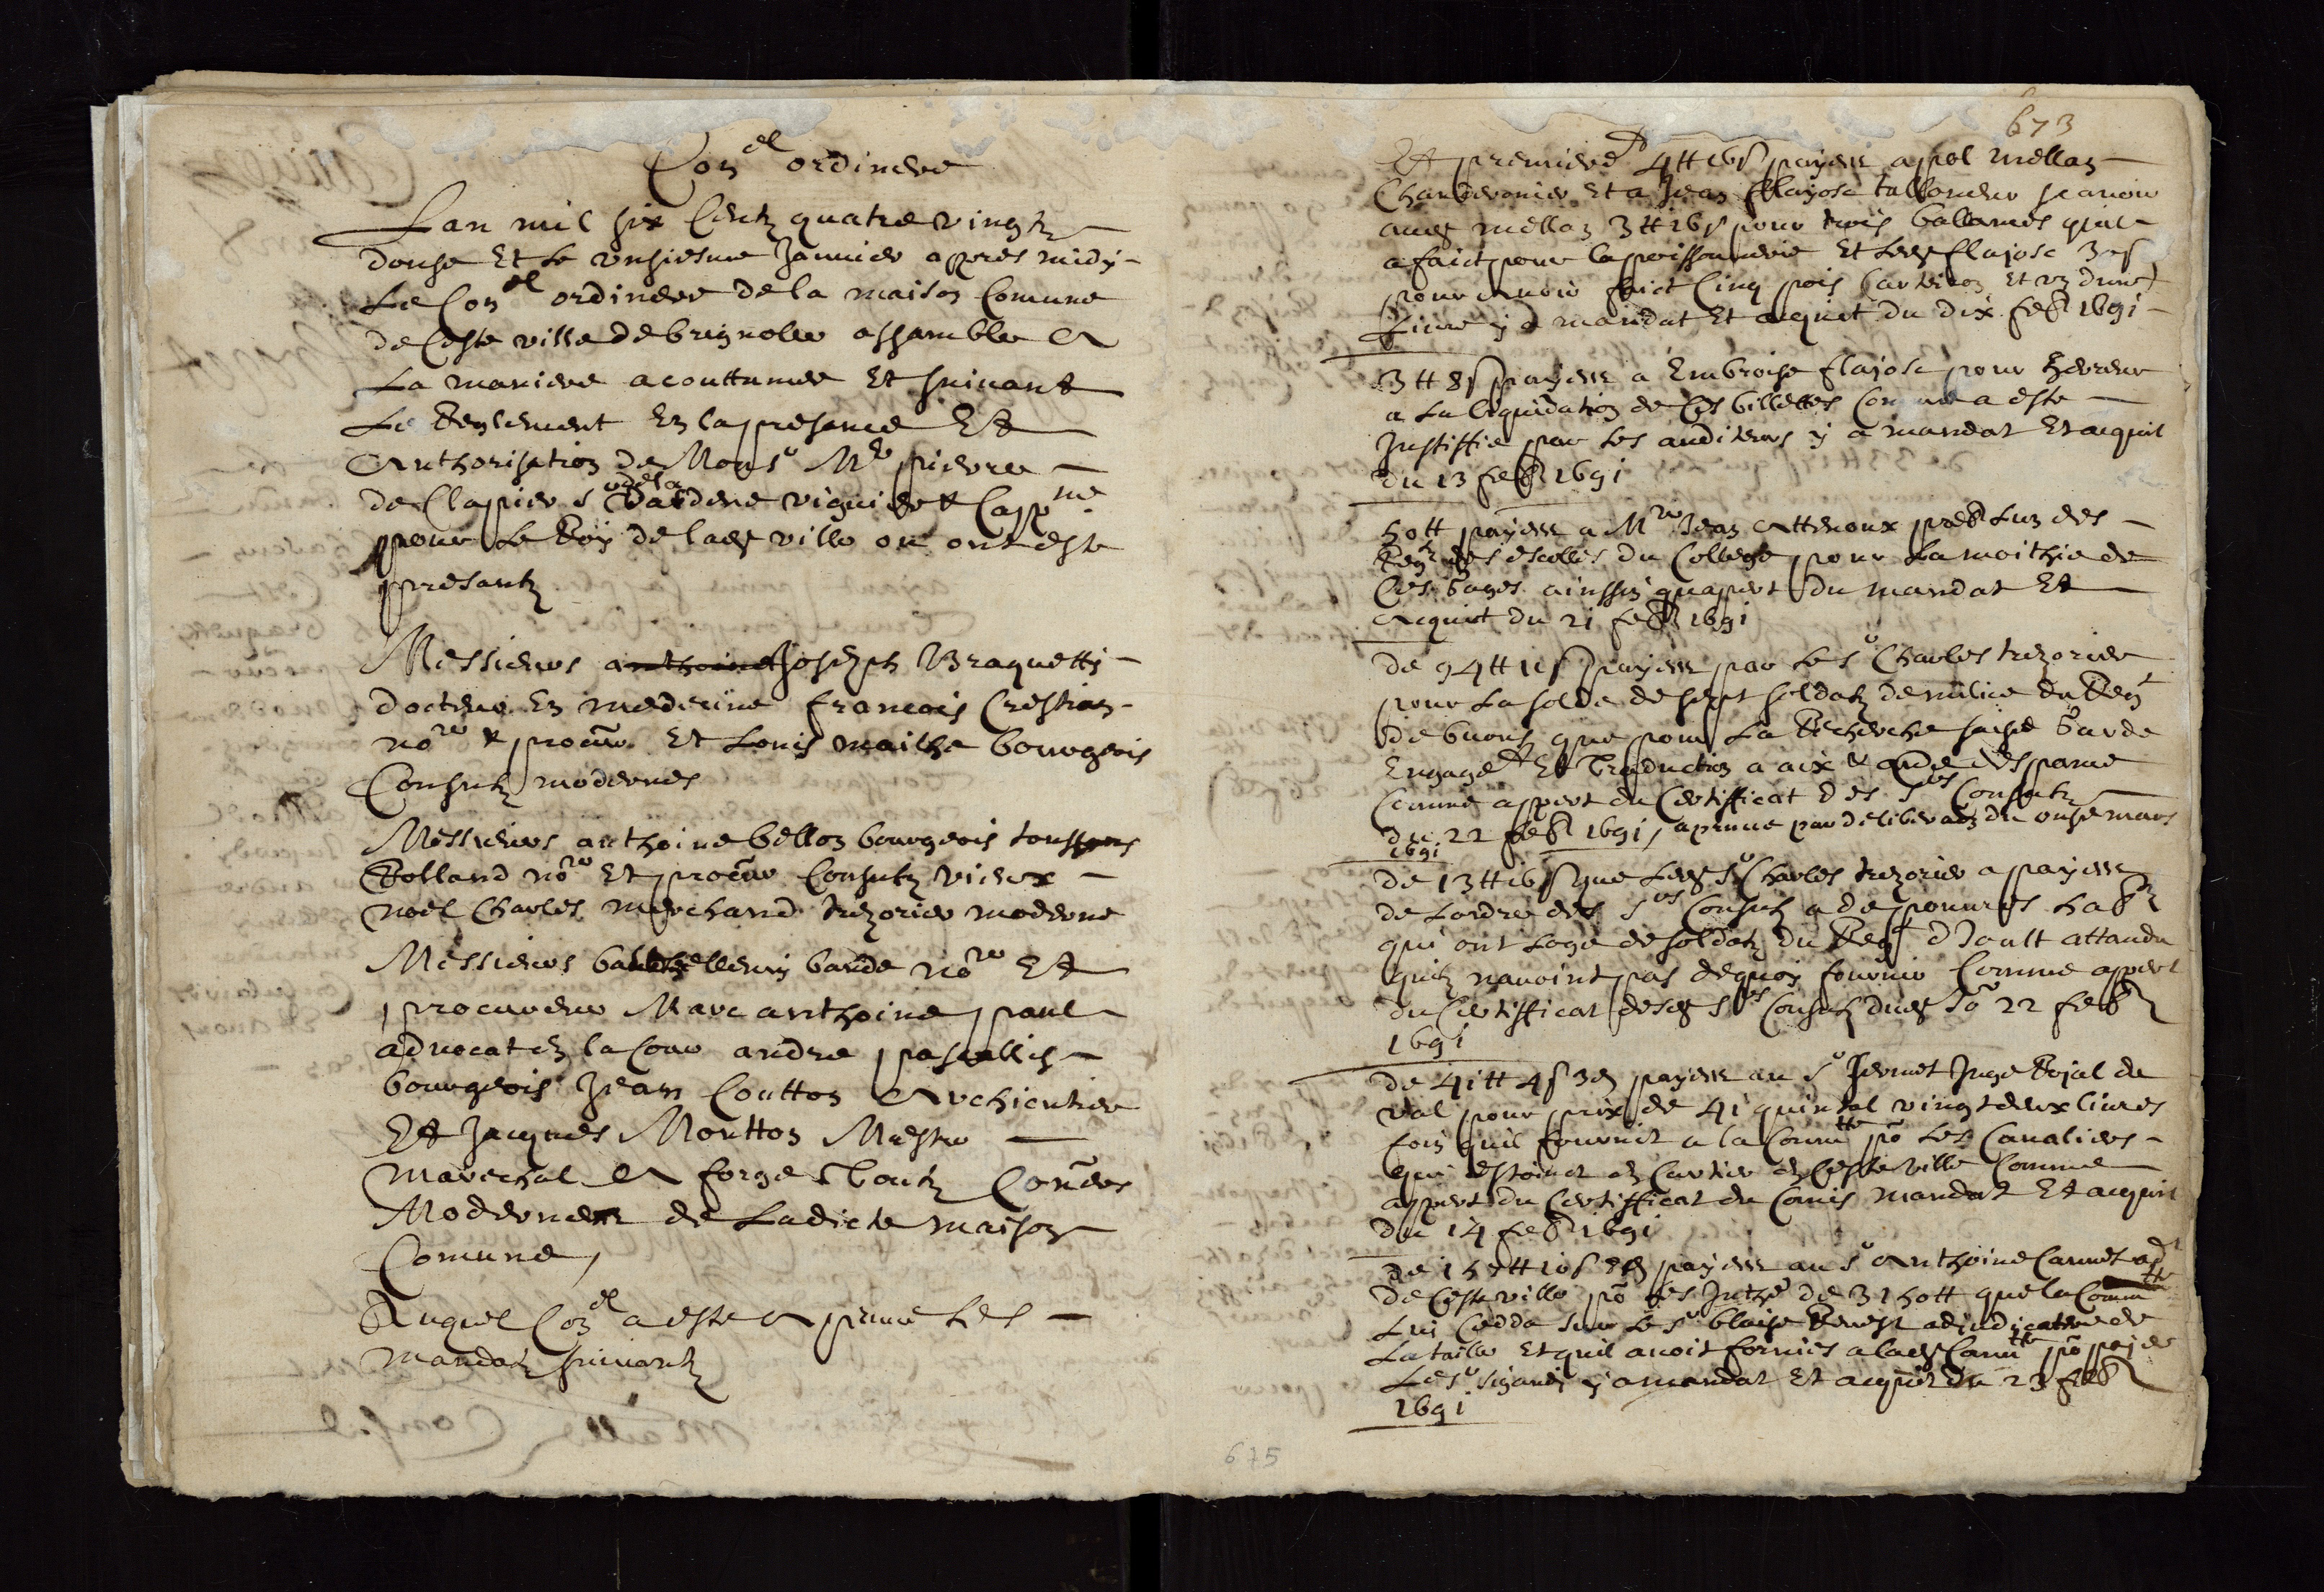 Con.el ordinere
Lan mil six Centz quatre vingtz
donse Et Le vnsiesme Jannier appres midy
Le Con.el ordinere de la maison Comune
de Ceste ville de brignolle assamblee A
La maniere acouttumee Et suivant
Le Reglement En la presance Et
Authorisation de Monsr Me pierre
de Clappier sr vgdela Dardene viguier & Capp.ne
pour Le Roy de lad ville ou ont este
presantz
Messieurs anthoine Joseph Braquetty
docteur En medecine francois Crestian
nore & procur Et Louis mailhe bourgeois
Consulz modernes
Messieurs anthoine bellon bourgeois
Rolland nore Et procur Consulz vieux
noel Charles merchand trezorier moderne
Messieurs barde nore Et
procureur Marc anthoine paul
advocat En la Cour andre pascallis
bourgeois Jean Coutton Archicutier
Et Jacques Moutton Mestre
mareschal A forge Toutz Coners
Modernes de Ladicte maison
Comune,
Auquel Con.el a este A prouue Les
mandatz suivantz
673
Et premiere.t 4tt 16s payees a pol mellan
Chauderonier Et a Jean fflayosc tallondeur scavoir
aud mellan 3tt 16s pour trois ballances quil
a faict pour la poissonnerie Et Led flajosc
pour avoir faict Cinq pois Carteiron Et vn dune
Liure y a mandat Et acquit du dix feb 1691
3tt 8s payees a Embroise flajosc pour
a La liquidation de Ces billettes Comme a este
Justiffie par Les auditeurs y a mandat Et acquit
du 13 feb 1691
50tt payees a Mre Jean Attenoux preb Lun des
Regz des escolles du College pour La moithie de
Ces Gages ainssin quapert du mandat Et
acquit du 21 feb 1691
de 94tt 1s payees par Le sr Charles trezorier
pour La solde de sept soldatz de milice du Regt
de buoux que pour La Recherche garde
Engaget Et Traduction a aix &
Comme appert du Certifficat des srs Consulz
du 22 feb 1691, aprouue par deliberaon du onse mars
1691
de 13tt 16s que Led sr Charles trezorier a payees
de Lordre des srs Consulz a de pouures habz
qui ont Loge de soldatz du Regt attandu
quilz navoint pas dequoy fournir Comme appert
du Certifficat desd srs Consulz dud Jo 22 feb
1691
de 41tt 4s 3d payees au sr Jermet Juge Rojal de
val pour prix de 41 quintal vingt deux liures
foin quil fournit a la Comm.tte po Les Cavaliers
qui estoinct en Cartier en Ceste ville Comme
appert du Certifficat du Comis mandat Et acquit
du 14 feb 1691
de 155tt 10s payees au sr Anthoine
de Ceste ville po Les Inthet de 3150tt que la Comm.tte
Luy Cedda sur Le sr blaise adjudicatere de
La taille Et quil avoit fornies a lad Comm.tte po payer
Le sr y a mandat Et acquit du 23 feb
1691
675